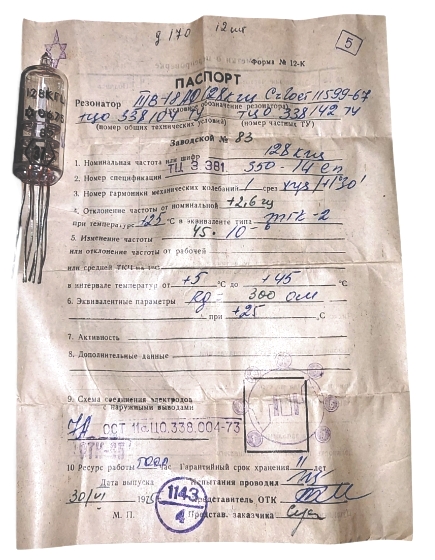 д 170 12 шт
5
Форма № 12-К
ПАСПОРТ
Резонатор 128 кгц Ст Гост 11599-67
(условное обозначение резонатора)
ЦО 338104 ТУ ЦО 338142 ТУ
(номер общих технических условий) (номер частных ТУ)
Заводской № 83
1. Номинальная частота или шифр 128 кгц
2. Номер спецификации ТЦ 3.381. 350-14 сп
3. Номер гармоники механических колебаний 1 срез
4. Отклонение частоты от номинальной +2,6 гц
при температуре +25 °С в эквиваленте типа
5. Изменение частоты 45·10⁻⁶
или отклонение частоты от рабочей
или средней
в интервале температур от +5 °С до +45 °С
6. Эквивалентные параметры Rд = 300 ом
при +25 °С
7. Активность
8. Дополнительные данные
9. Схема соединения электродов
с наружными выводами
ОСТ 11 ЦО.338.004-73
10 Ресурс работы час Гарантийный срок хранения 11 лет
Дата выпуска Испытания проводил
30/VI Представитель ОТК
1143
4
М. П. Представ. заказчика
128КГЦ